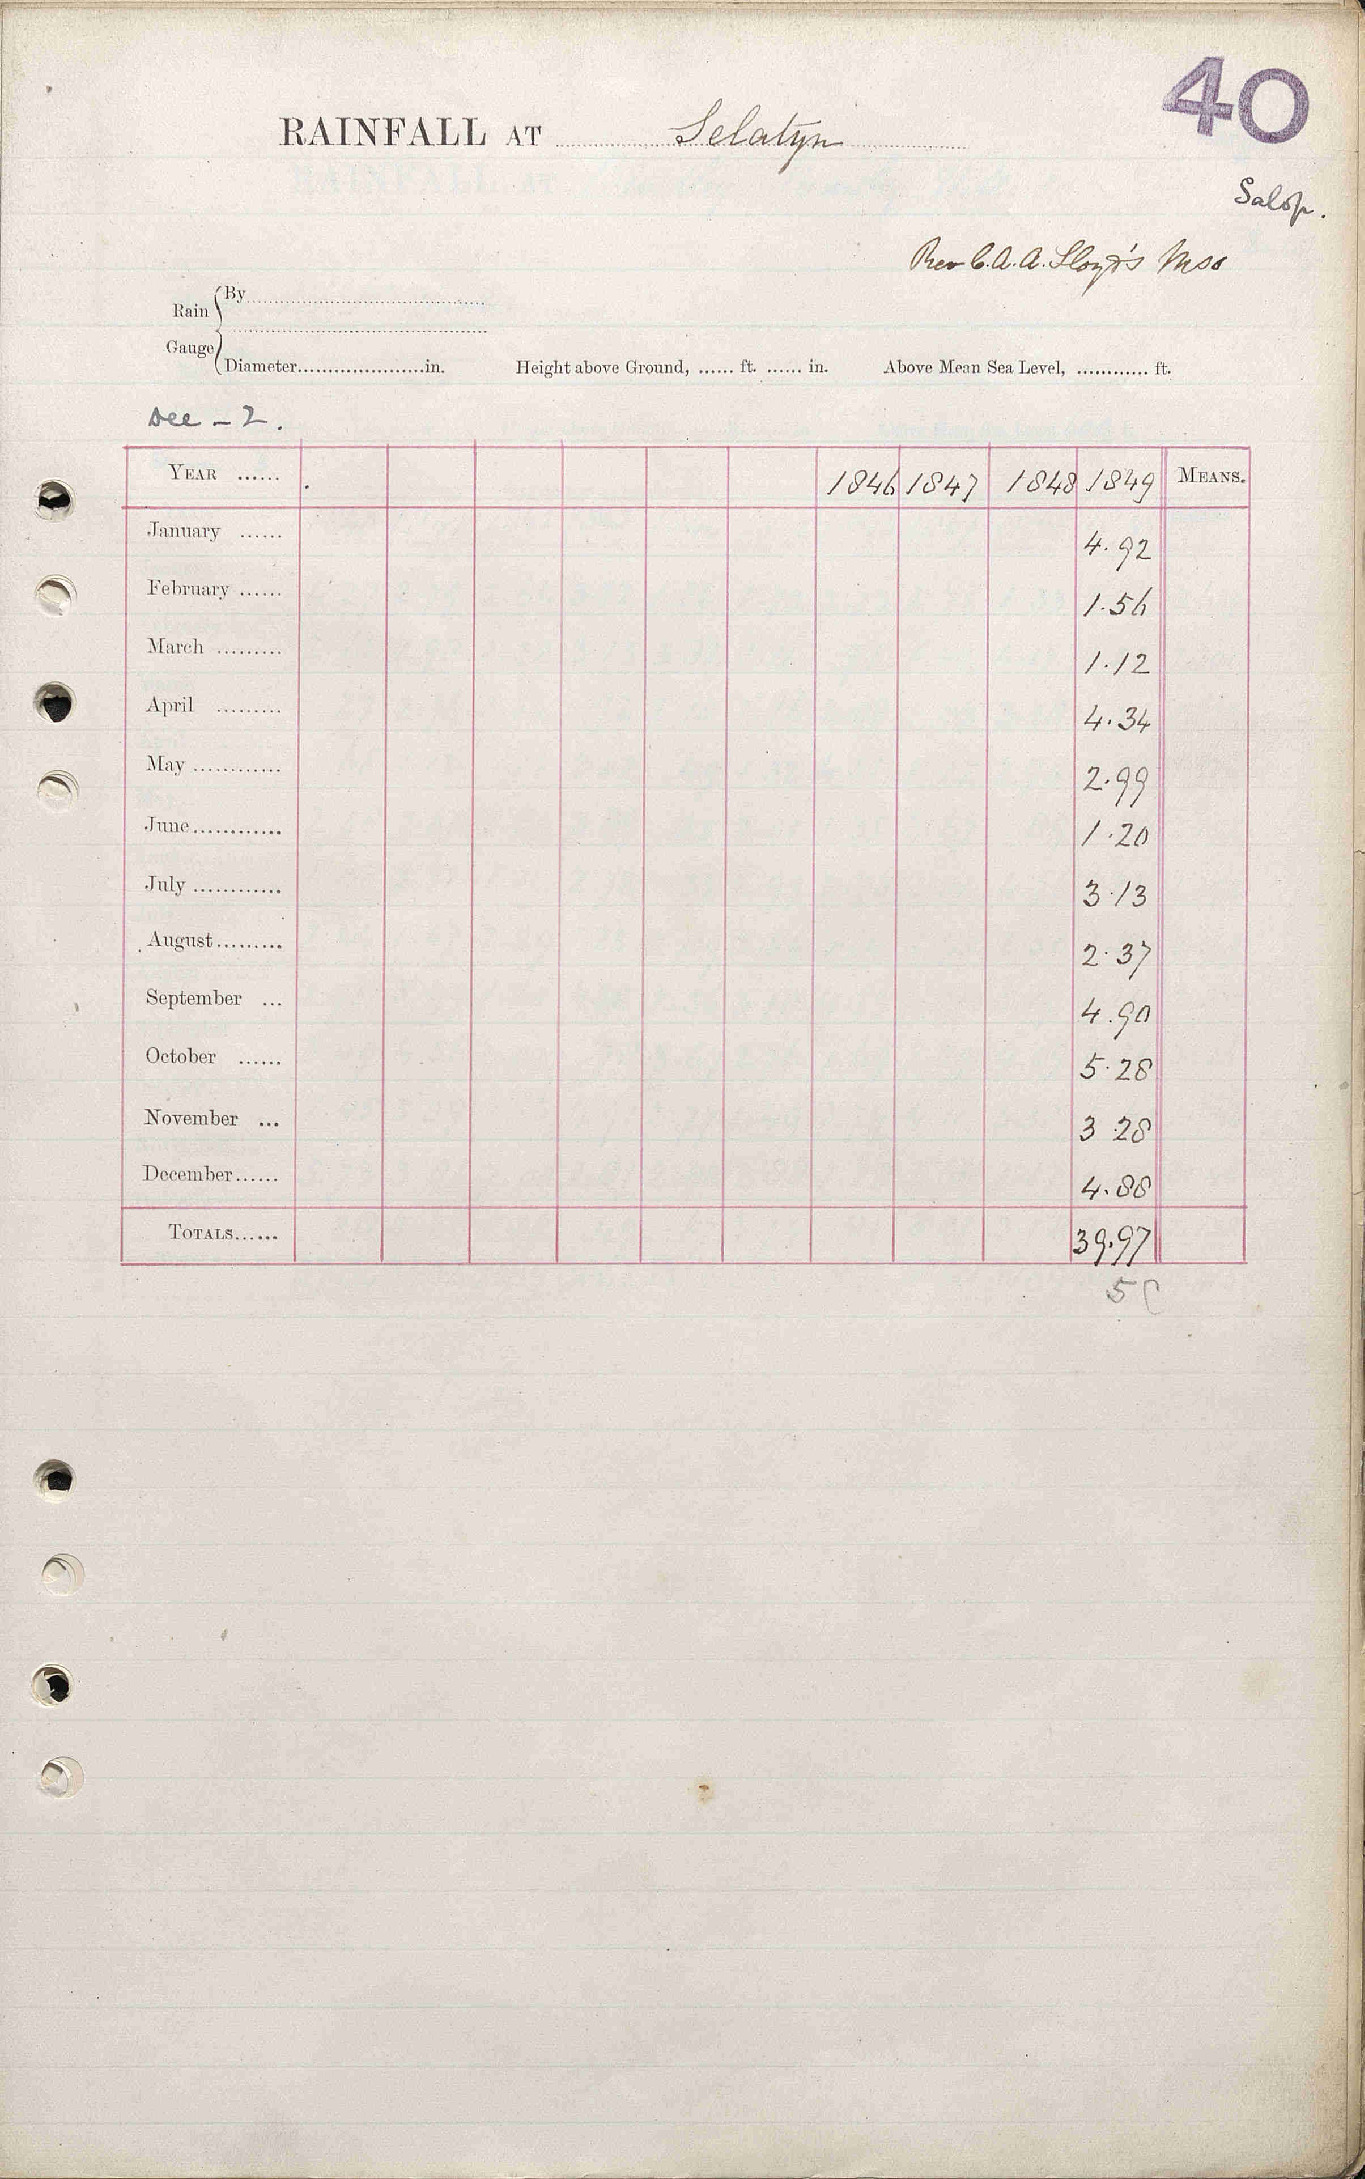 40
RAINFALL AT Selatyn
Salop.
Rev C. A. A. Lloyd's Mss
Rain Gauge
By
Diameter in. Height above Ground, ft. in. Above Mean Sea Level, ft.
Dee - 2.
YEAR 1846 1847 1848 1849 MEANS.
January 4.92
February 1.56
March 1.12
April 4.34
May 2.99
June 1.20
July 3.13
August 2.37
September 4.90
October 5.28
November 3 28
December 4.88
TOTALS 39.97